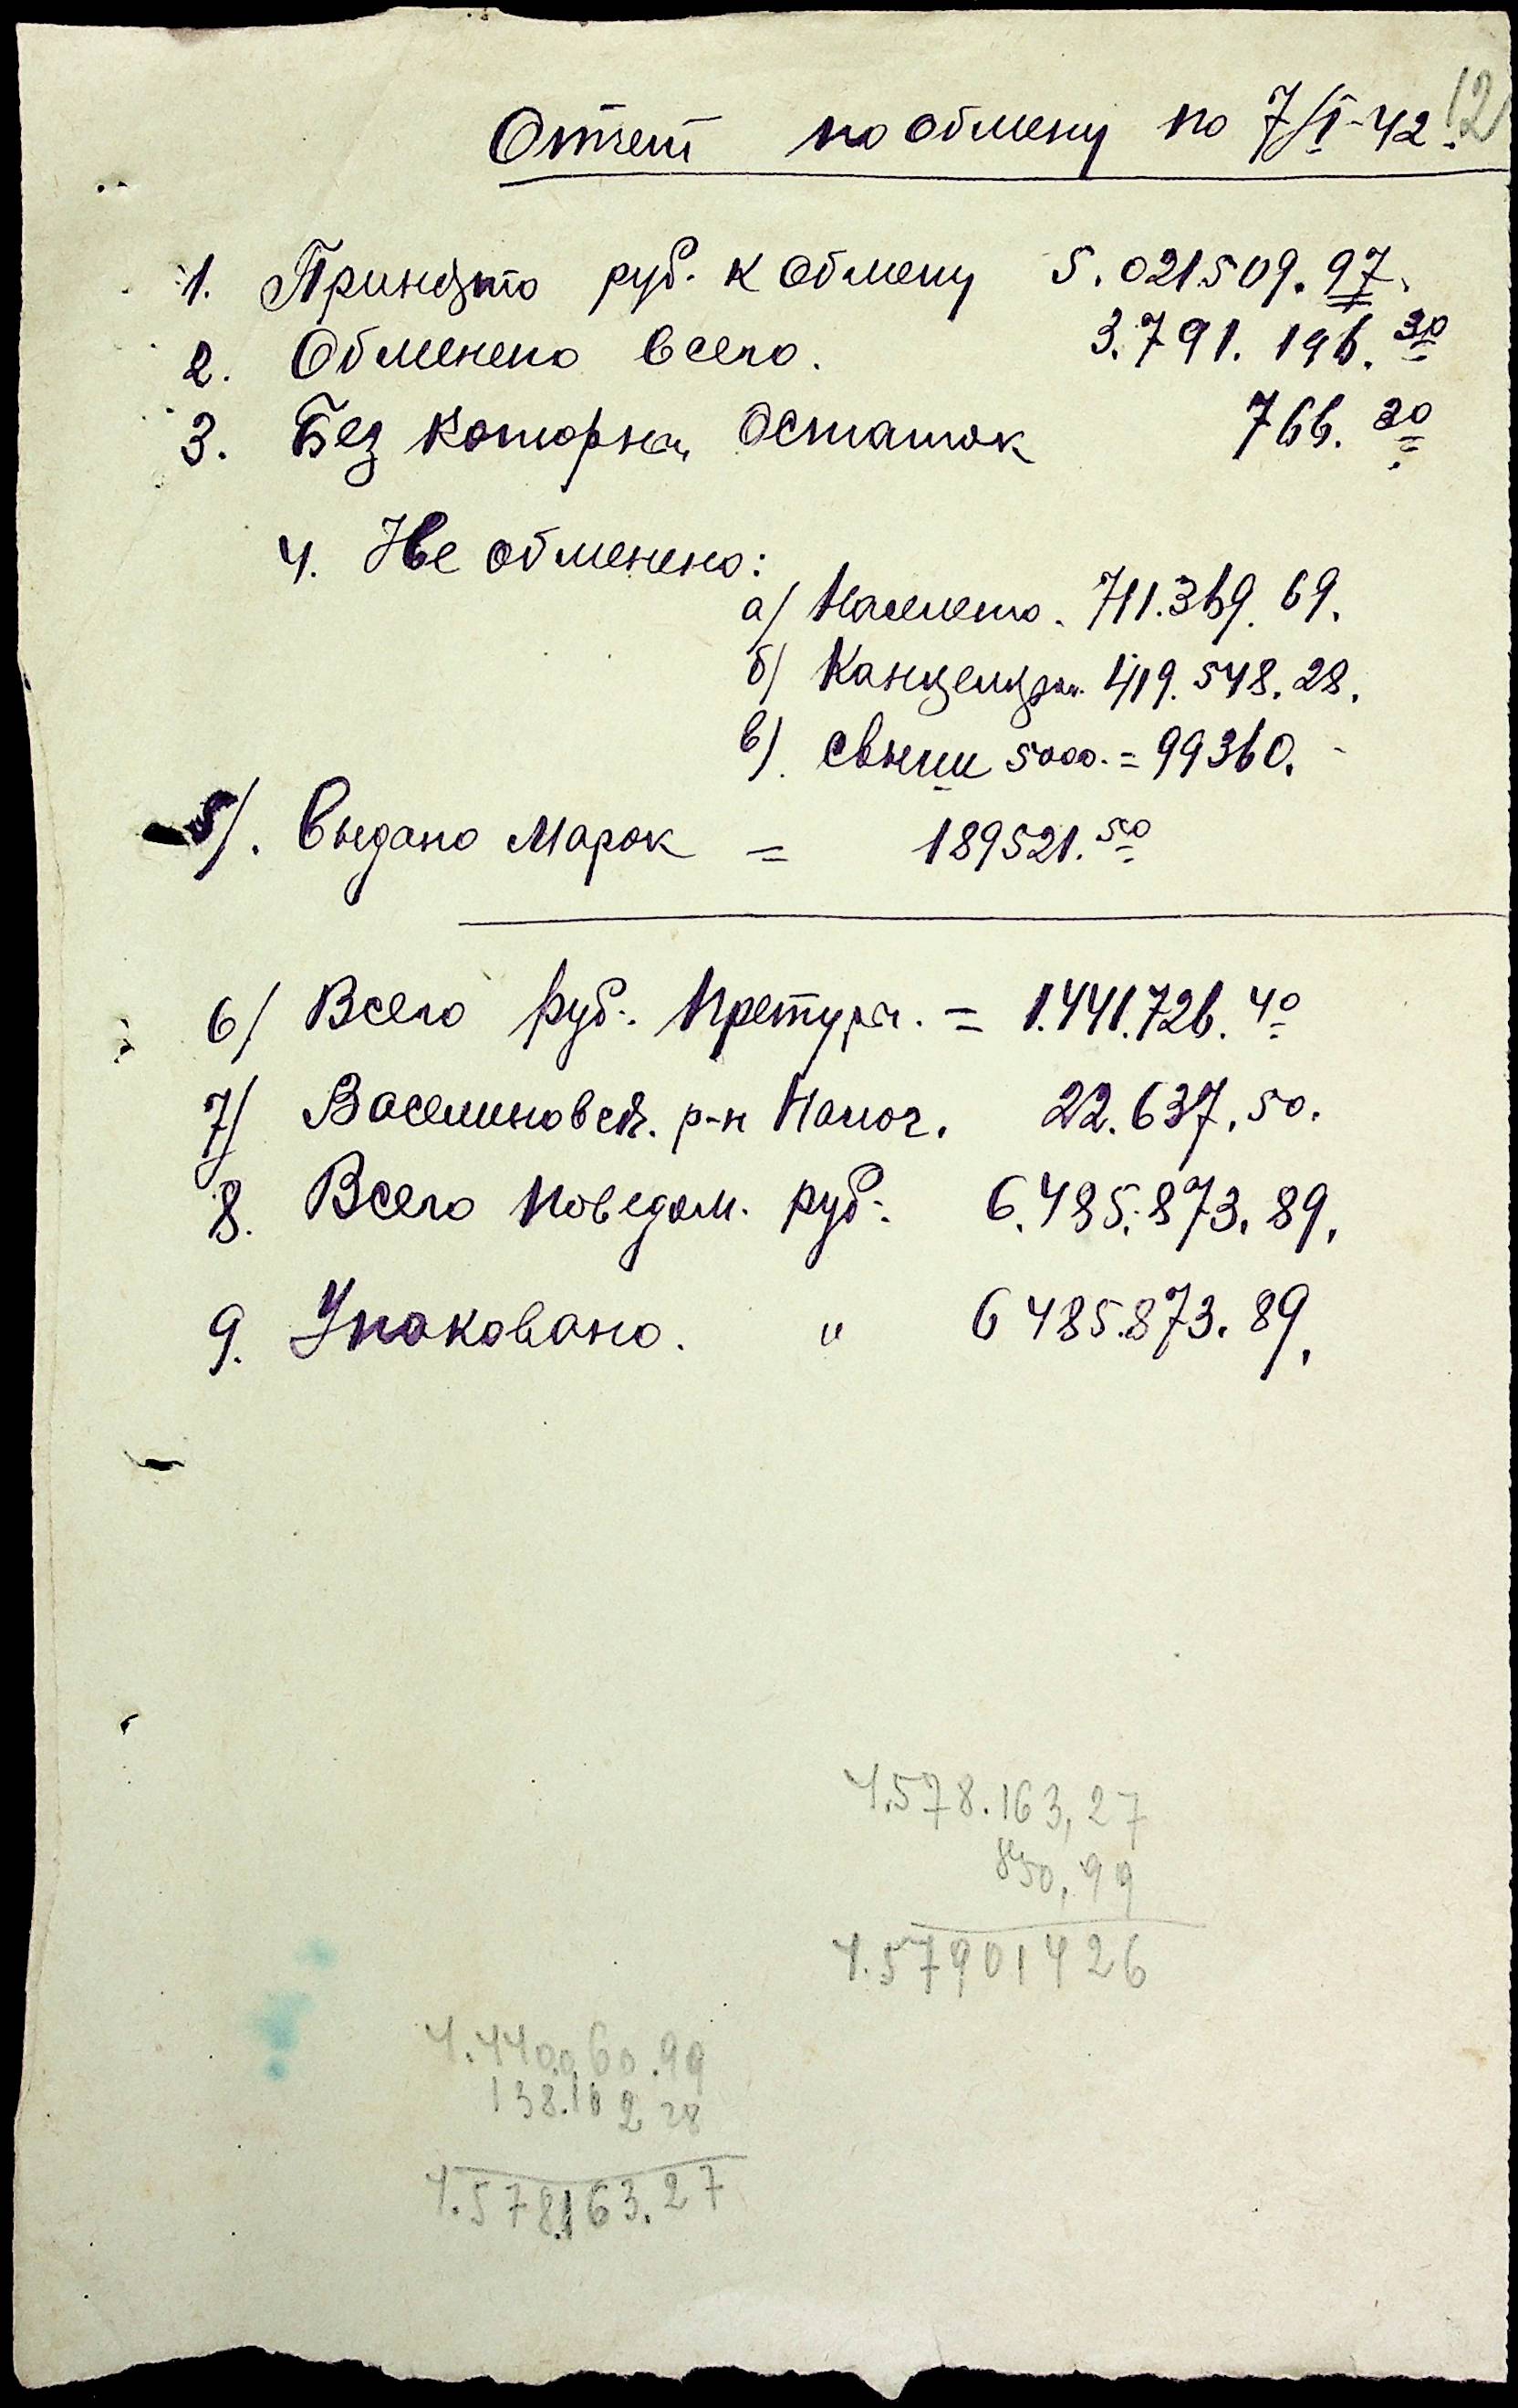 Отчет по обмену по 7/I-42. 12
1. Принято руб. к обмену 5.021509.97.
2. Обменено всего. 3.791.196.30
3. Без которых Остаток 766.30
4. Не обменено:
а/ 711.369.69.
б/ Канцеляр. 419.548.28.
в/. свыши 5000. = 99360.-
5/. Выдано Марок = 189521.50
6/ Всего руб. Претура. = 1.441.726.40
7/ р-н 22.637.50.
8. Всего по ведом. руб. 6.485.873.89.
9. Упаковано. " 6485.873.89.
4.578.163,27
850,99
4.57901426
4.440.060.99
138.102 28
4.578.163.27